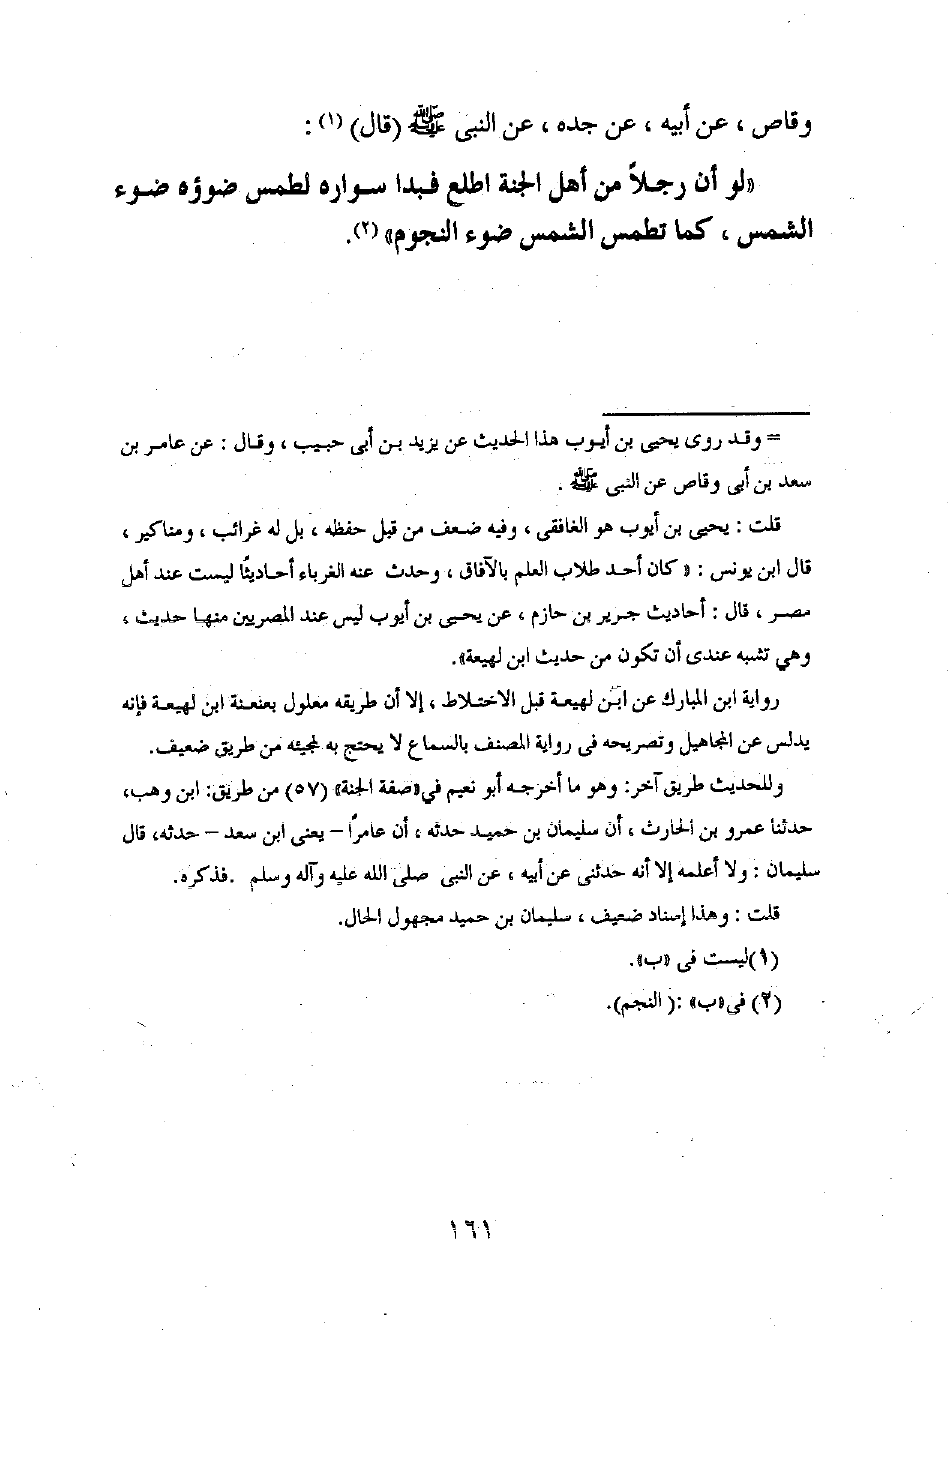 وقاص ، عن أبيه ، عن جده ، عن النبى ﷺ (قال) (١) :
«لو أن رجلاً من أهل الجنة اطلع فبدا سواره لطمس ضوؤه ضوء
الشمس ، كما تطمس الشمس ضوء النجوم» (٢).
= وقد روى يحيى بن أيوب هذا الحديث عن يزيد بن أبى حبيب ، وقال : عن عامر بن
سعد بن أبى وقاص عن النبى ﷺ .
قلت : يحيى بن أيوب هو الغافقى ، وفيه ضعف من قبل حفظه ، بل له غرائب ، ومناكير ،
قال ابن يونس : « كان أحد طلاب العلم بالآفاق ، وحدث عنه الغرباء أحاديثًا ليست عند أهل
مصر ، قال : أحاديث جرير بن حازم ، عن يحيى بن أيوب ليس عند المصريين منها حديث ،
وهي تشبه عندى أن تكون من حديث ابن لهيعة».
رواية ابن المبارك عن ابن لهيعة قبل الاختلاط ، إلا أن طريقه معلول بعنعنة ابن لهيعة فإنه
يدلس عن المجاهيل وتصريحه فى رواية المصنف بالسماع لا يحتج به لمجيئه من طريق ضعيف.
وللحديث طريق آخر: وهو ما أخرجه أبو نعيم في«صفة الجنة» (٥٧) من طريق: ابن وهب،
حدثنا عمرو بن الحارث ، أن سليمان بن حميد حدثه ، أن عامرًا – يعنى ابن سعد – حدثه، قال
سليمان : ولا أعلمه إلا أنه حدثنى عن أبيه ، عن النبى صلى الله عليه وآله وسلم .فذكره.
قلت : وهذا إسناد ضعيف ، سليمان بن حميد مجهول الحال.
(١)ليست فى «ب».
(٢) فى«ب» :( النجم).
١٦١